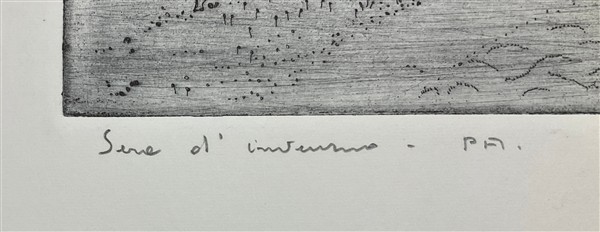 Sera d' inverno - PA.